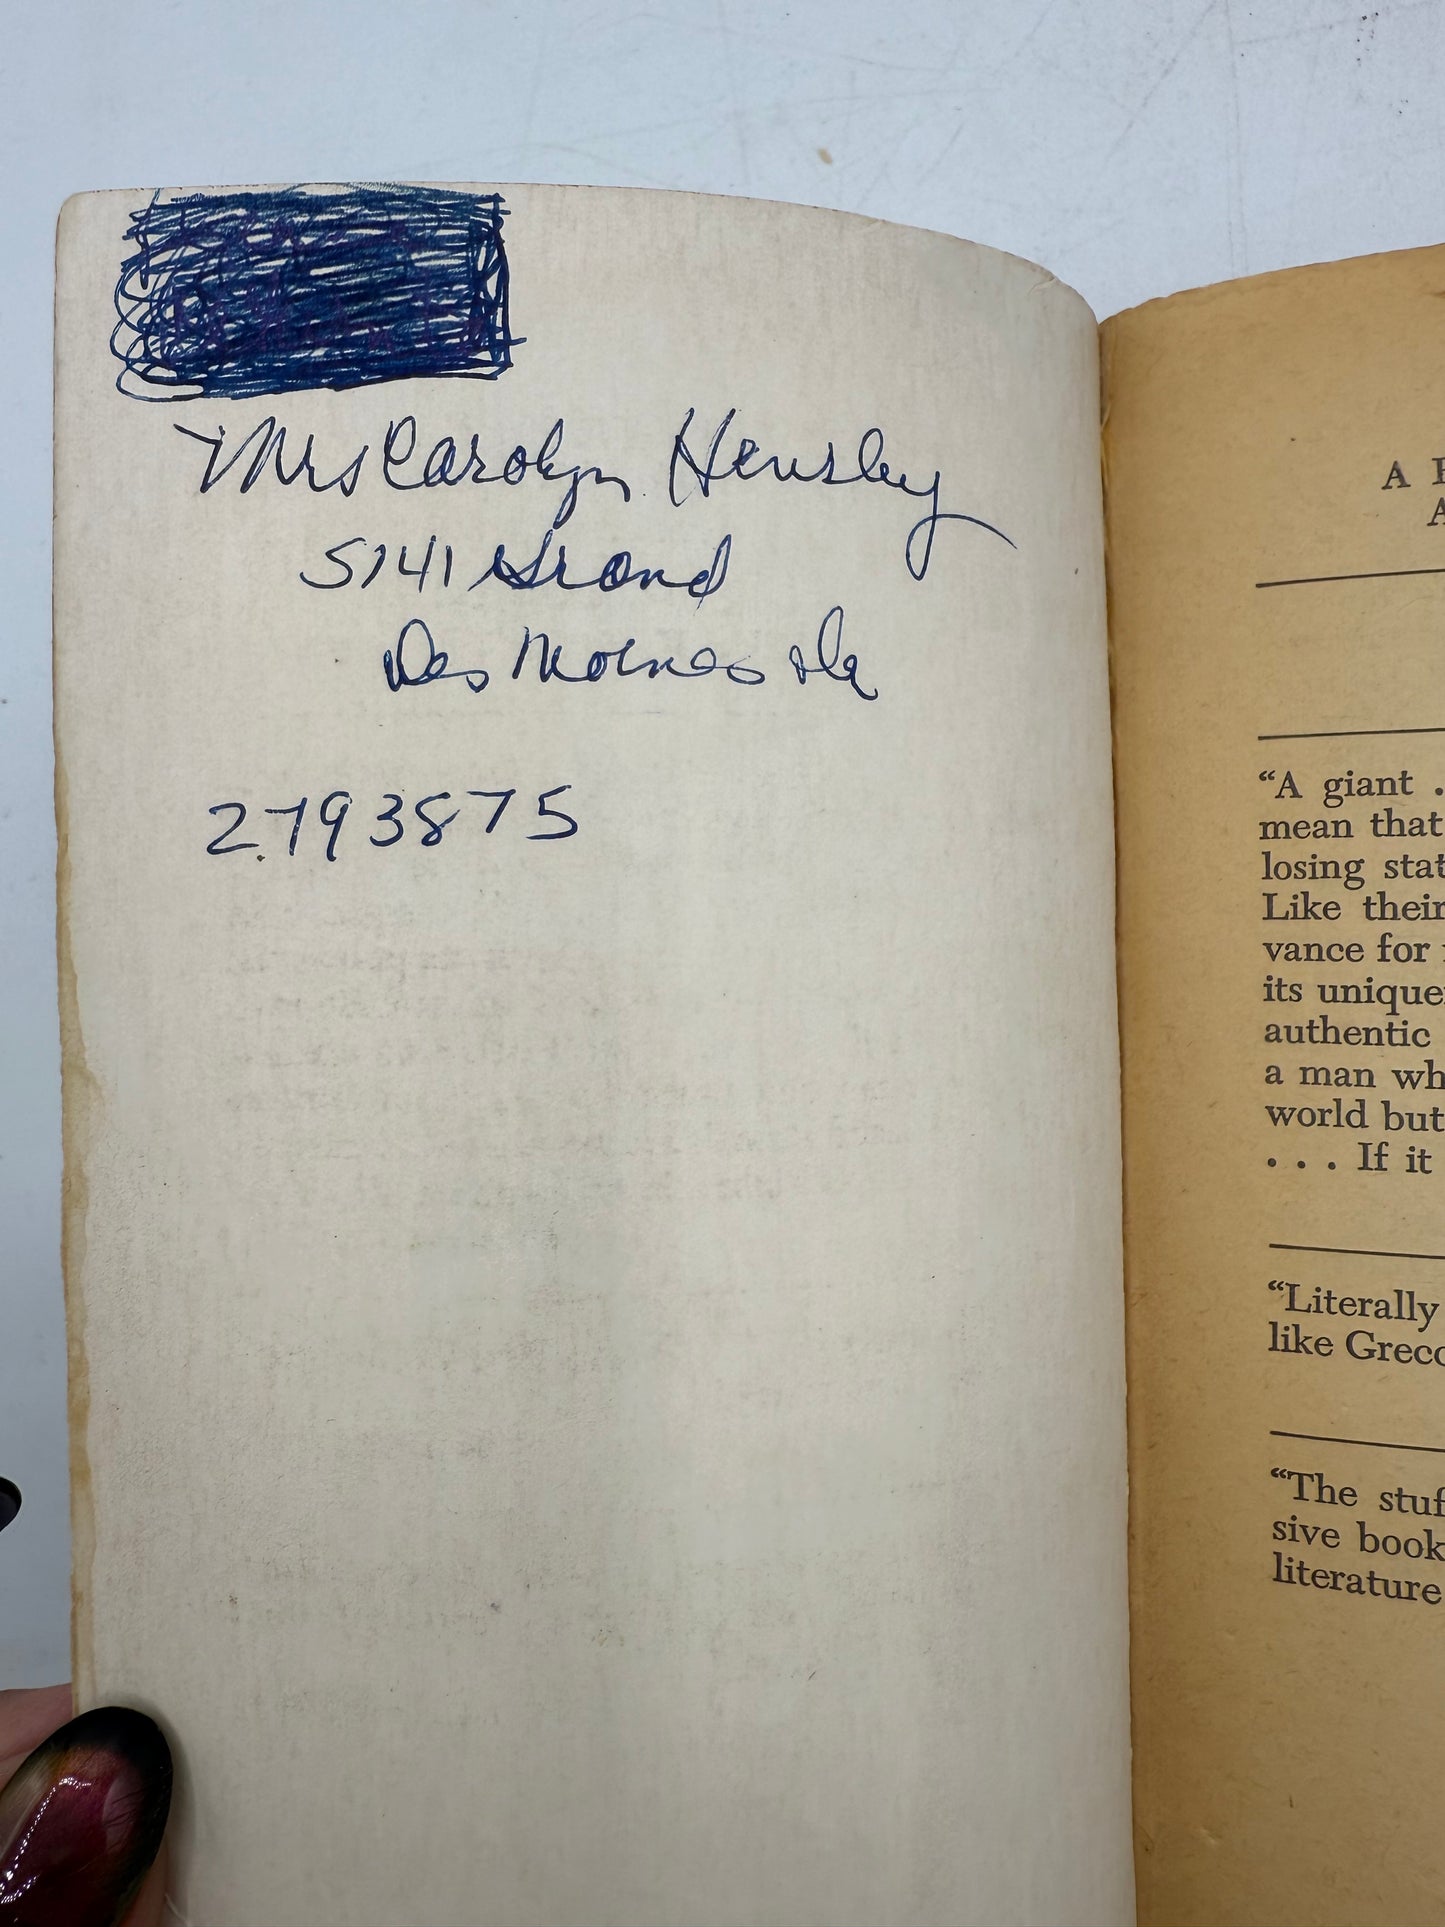 Mrs Carolyn Hensley
5141 Grand
Des Moines Ia
2793875
A
A
"A giant .
mean that
losing
Like their
vance for
its
authentic
a man
world but
... If it
"Literally
like
"The
sive book
literature